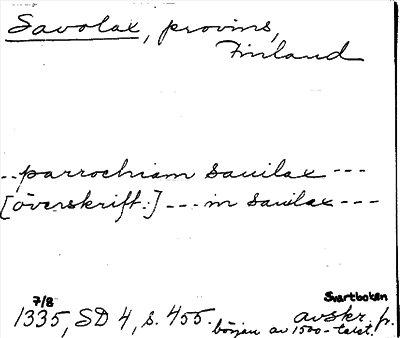 Savolax, provins,
Finland
-- parrochiam sauilax ---
[överskrift:] --- in sauilax ---
7/8
Svartboken
1335, SD 4, s. 455.
avskr. fr.
början av 1500-talet.